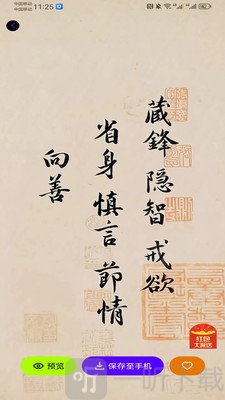 中国移动
中国移动 11:25
藏鋒隐智戒欲
省身慎言節情
向善
红包
大派送
预览
保存至手机
一听下载